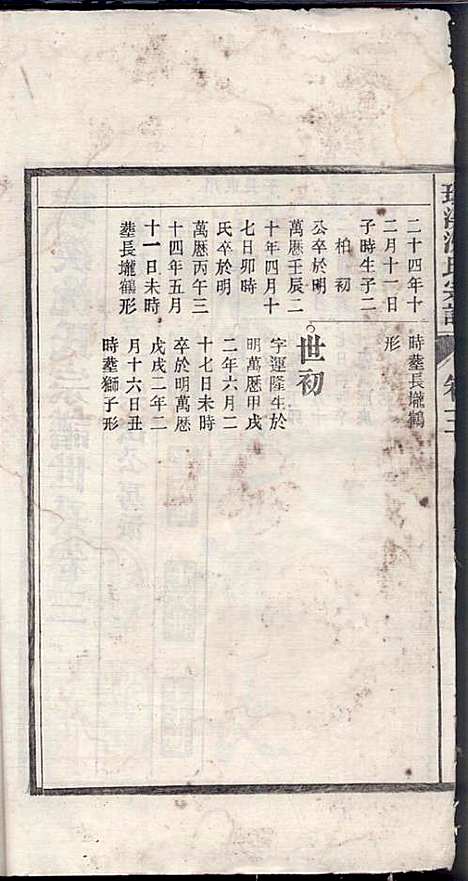 氏宗譜
卷三
二十四年十
二月十一日
子時生子二
柏 初
公卒於明
萬厯壬辰二
十年四月十
七日卯時
氏卒於明
萬厯丙午三
十四年五月
十一日未時
塟長壠鶴形
時塟長壠鶴
形
世初
字運隆生於
明萬厯甲戌
二年六月二
十七日未時
卒於明萬厯
戊戌二年二
月十六日丑
時塟獅子形